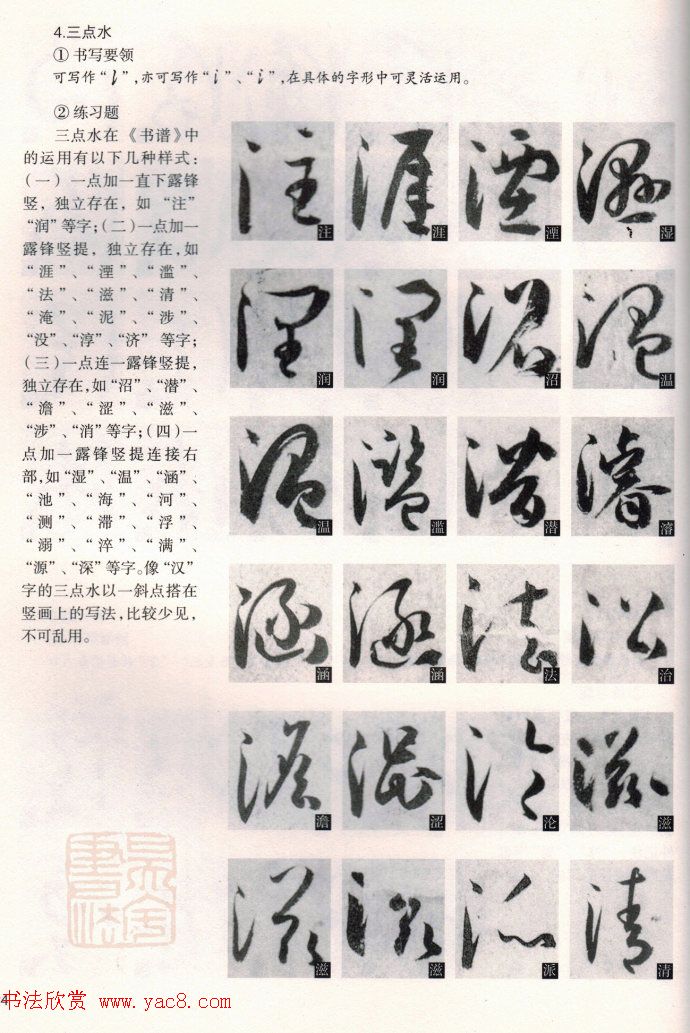 4.三点水
①书写要领
可写作“氵”,亦可写作“氵”、“氵”,在具体的字形中可灵活运用。
②练习题
三点水在《书谱》中
的运用有以下几种样式:
(一)一点加一直下露锋
竖,独立存在,如“注”
“润”等字;(二)一点加一
露锋竖提,独立存在,如
“涯”、“湮”、“滥”、
“法”、“滋”、“清”、
“淹”、“泥”、“涉”、
“没”、“淳”、“济”等字;
(三)一点连一露锋竖提,
独立存在,如“沼”、“潜”、
“澹”、“涩”、“滋”、
“涉”、“消”等字;(四)一
点加一露锋竖提连接右
部,如“湿”、“温”、“涵”、
“池”、“海”、“河”、
“测”、“滞”、“浮”、
“溺”、“淬”、“满”、
“源”、“深”等字。像“汉”
字的三点水以一斜点搭在
竖画上的写法,比较少见,
不可乱用。
注 涯 湮 湿
润 润 沼 温
温 滥 潜 濬
涵 涵 法 治
澹 涩 沦 滋
滋 滋 派 清
4
书法欣赏 www.yac8.com